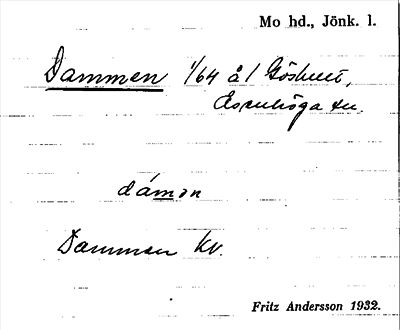 Mo hd., Jönk. l.
Dammen 1/64 å 1 Göshult,
Esenhöga sn.
dámən
Dammen kv.
Fritz Andersson 1932.